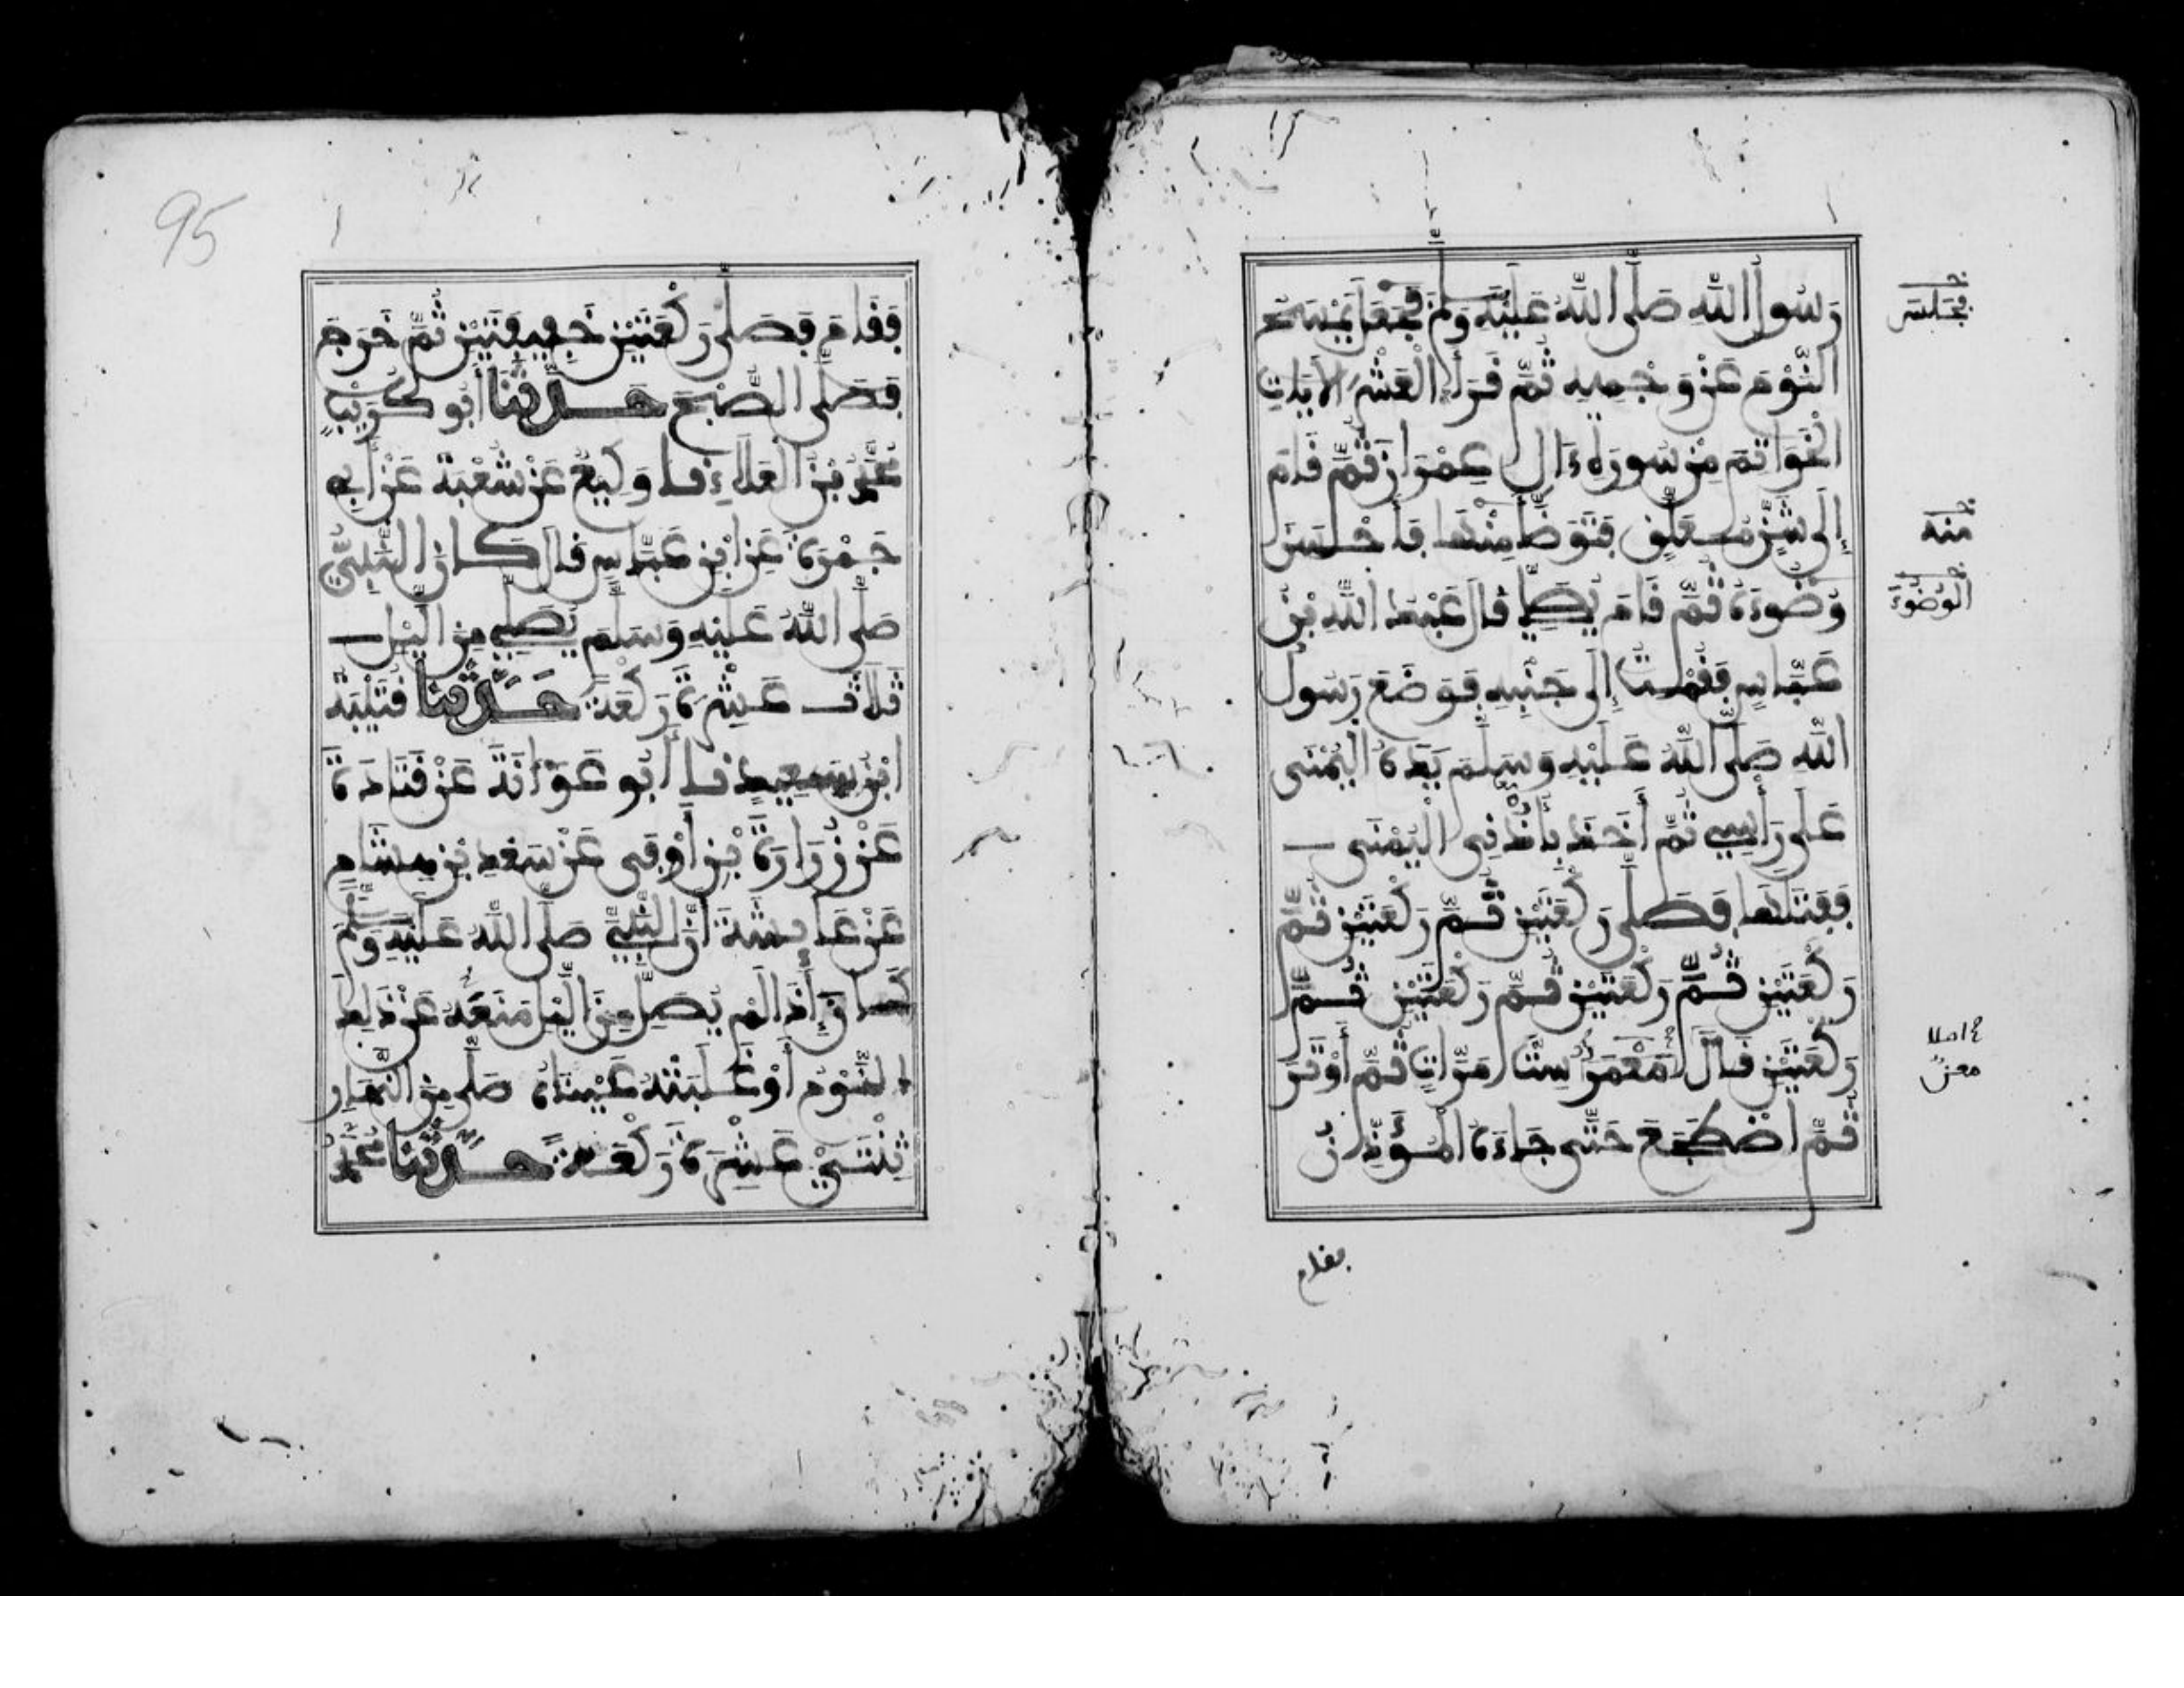 رَسُولُ اللَّهِ صَلَّى اللَّهُ عَلَيْهِ وَسَلَّمَ فَجَعَلَ يَمْسَحُ
النَّوْمَ عَنْ وَجْهِهِ ثُمَّ قَرَأَ الْعَشْرَ الْآيَاتِ
الْخَوَاتِمَ مِنْ سُورَةِ ءَالِ عِمْرَانَ ثُمَّ قَامَ
إِلَى شَنٍّ مُعَلَّقٍ فَتَوَضَّأَ مِنْهَا فَأَحْسَنَ
وُضُوءَهُ ثُمَّ قَامَ يُصَلِّي قَالَ عَبْدُ اللَّهِ بْنُ
عَبَّاسٍ فَقُمْتُ إِلَى جَنْبِهِ فَوَضَعَ رَسُولُ
اللَّهِ صَلَّى اللَّهُ عَلَيْهِ وَسَلَّمَ يَدَهُ الْيُمْنَى
عَلَى رَأْسِي ثُمَّ أَخَذَ بِأُذُنِي الْيُمْنَى
فَفَتَلَهَا فَصَلَّى رَكْعَتَيْنِ ثُمَّ رَكْعَتَيْنِ ثُمَّ
رَكْعَتَيْنِ ثُمَّ رَكْعَتَيْنِ ثُمَّ رَكْعَتَيْنِ ثُمَّ
رَكْعَتَيْنِ قَالَ مَعْنٌ سِتَّ مَرَّاتٍ ثُمَّ أَوْتَرَ
ثُمَّ اضْطَجَعَ حَتَّى جَاءَهُ الْمُؤَذِّنُ
فجلس
منه
الوُضُوءَ
معن
فقام
95
فَقَامَ فَصَلَّى رَكْعَتَيْنِ خَفِيفَتَيْنِ ثُمَّ خَرَجَ
فَصَلَّى الصُّبْحَ حَدَّثَنَا أَبُو كُرَيْبٍ
مُحَمَّدُ بْنُ الْعَلَاءِ نا وَكِيعٌ عَنْ شُعْبَةَ عَنْ أَبِي
جَمْرَةَ عَنِ ابْنِ عَبَّاسٍ قَالَ كَانَ النَّبِيُّ
صَلَّى اللَّهُ عَلَيْهِ وَسَلَّمَ يُصَلِّي مِنَ اللَّيْلِ
ثَلَاثَ عَشْرَةَ رَكْعَةً حَدَّثَنَا قُتَيْبَةُ
ابْنُ سَعِيدٍ نا أَبُو عَوَانَةَ عَنْ قَتَادَةَ
عَنْ زُرَارَةَ بْنِ أَوْفَى عَنْ سَعْدِ بْنِ هِشَامٍ
عَنْ عَائِشَةَ أَنَّ النَّبِيَّ صَلَّى اللَّهُ عَلَيْهِ وَسَلَّمَ
كَانَ إِذَا لَمْ يُصَلِّ مِنَ اللَّيْلِ مَنَعَهُ عَنْ ذَلِكَ
النَّوْمُ أَوْ غَلَبَتْهُ عَيْنَاهُ صَلَّى مِنَ النَّهَارِ
ثِنْتَيْ عَشْرَةَ رَكْعَةً حَدَّثَنَا مُحَمَّدُ